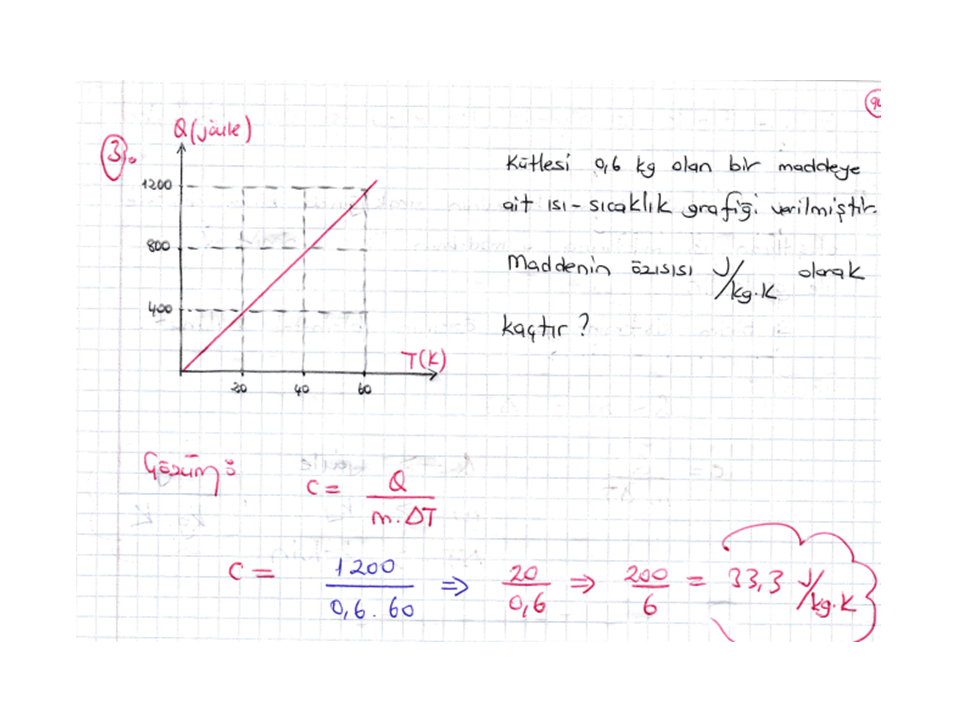 3.
Q(joule)
1200
800
400
20 40 60
T(K)
Kütlesi 0,6 kg olan bir maddeye
ait ısı-sıcaklık grafiği verilmiştir.
Maddenin özısısı J/kg.K olarak
kaçtır?
Çözüm:
c = Q / m.ΔT
c = 1200 / 0,6.60 ⇒ 20 / 0,6 ⇒ 200 / 6 = 33,3 J/kg.K